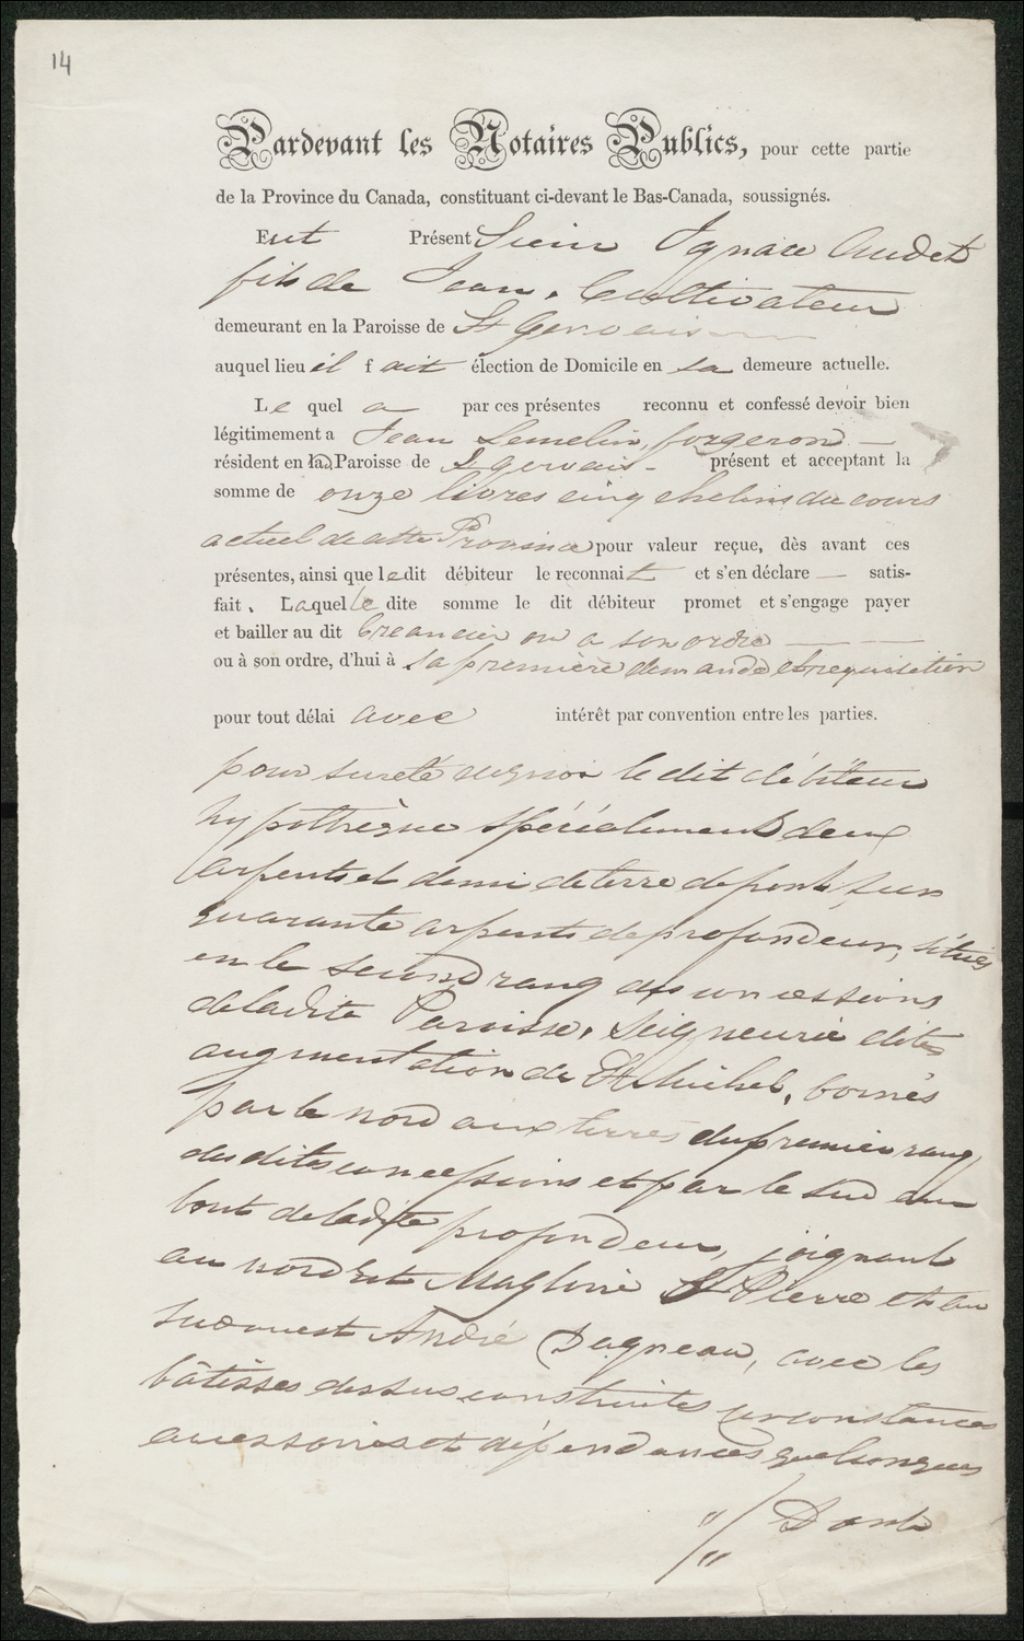 14
Pardevant les Notaires Publics, pour cette partie
de la Province du Canada, constituant ci-devant le Bas-Canada, soussignés.
Eut Présent Sieur Ignace Audet
fils de Jean, Cultivateur
demeurant en la Paroisse de St Gervais
auquel lieu il fait élection de Domicile en sa demeure actuelle.
Le quel a par ces présentes reconnu et confessé devoir bien
légitimement a Jean Lemelin, forgeron —
résident en lad Paroisse de St gervais - présent et acceptant la
somme de onze livres cinq chelins du cours
actuel de cette Province pour valeur reçue, dès avant ces
présentes, ainsi que ledit débiteur le reconnait et s'en déclare — satis-
fait. Laquelle dite somme le dit débiteur promet et s'engage payer
et bailler au dit Creancier ou a son ordre — —
ou à son ordre, d'hui à sa première demande et requisition
pour tout délai avec intérêt par convention entre les parties.
pour sureté de quoi le dit débiteur
hypothèque spécialement deux
arpents et demi de terre de front, sur
quarante arpents de profondeur, situés
en le second rang des concessions
de ladite Paroisse, Seigneurie dite
augmentation de St Michel, bornés
par le nord aux terres du premier rang
des dites concessions et par le sud au
bout de ladite profondeur, joignant
au nord Est Magloire St Pierre et au
sud ouest André Dagneau, avec les
bâtisses dessus construites circonstances
accessoires et dépendances quelconques
"/" Dont